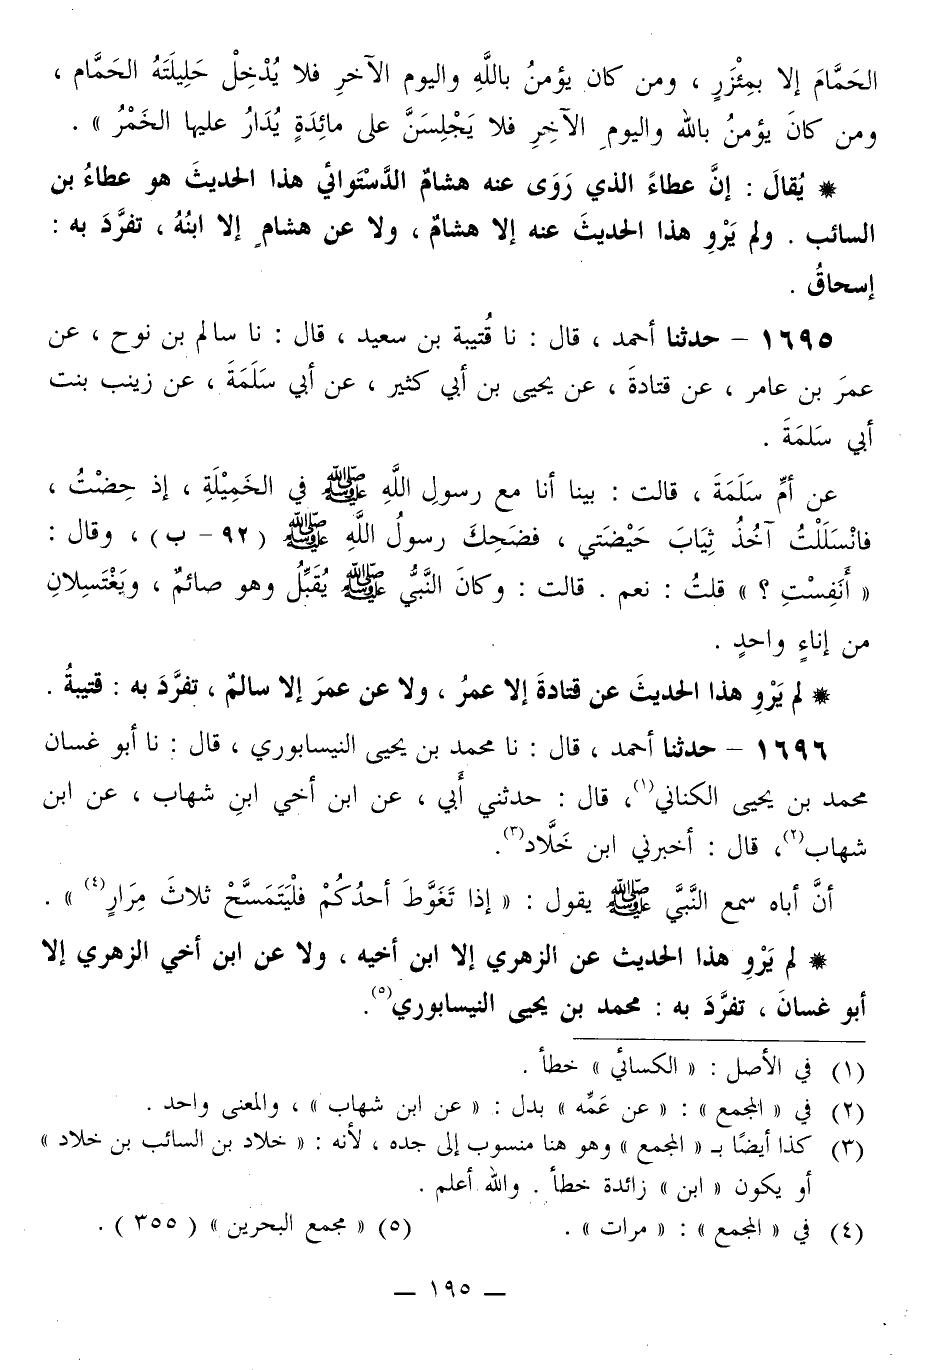 الحَمَّامَ إلا بمِئْزَرٍ ، ومن كان يؤمنُ باللَّهِ واليوم الآخرِ فلا يُدْخِلْ حَلِيلَتَهُ الحَمَّام ،
ومن كانَ يؤمنُ بالله واليومِ الآخِرِ فلا يَجْلِسَنَّ على مائِدَةٍ يُدَارُ عليها الخَمْرُ » .
* يُقالَ : إنَّ عطاءً الذي رَوَى عنه هشامٌ الدَّسْتَوائي هذا الحديثَ هو عطاءُ بن
السائب . ولم يَرْوِ هذا الحديثَ عنه إلا هشامٌ ، ولا عن هشامٍ إلا ابنُهُ ، تفرَّدَ به :
إسحاقُ .
١٦٩٥ – حدثنا أحمد ، قال : نا قُتيبة بن سعيد ، قال : نا سالم بن نوح ، عن
عمرَ بن عامر ، عن قتادةَ ، عن يحيى بن أبي كثير ، عن أبي سَلَمَةَ ، عن زينب بنت
أبي سَلمَةَ .
عن أمِّ سَلَمَةَ ، قالت : بينا أنا مع رسولِ اللَّهِ ﷺ في الخَمِيْلَةِ ، إذ حِضْتُ ،
فانْسَلَلْتُ آخُذُ ثِيَابَ حَيْضَتي ، فضَحِكَ رسولُ اللَّهِ ﷺ (٩٢ - ب) ، وقال :
« أَنَفِسْتِ ؟ » قلتُ : نعم . قالت : وكانَ النَّبيُّ ﷺ يُقَبِّلُ وهو صائمٌ ، ويَغْتَسِلانِ
من إناءٍ واحدٍ .
* لم يَرْوِ هذا الحديثَ عن قتادةَ إلا عمرُ ، ولا عن عمرَ إلا سالمٌ ، تفرَّدَ به : قتيبةُ .
١٦٩٦ – حدثنا أحمد ، قال : نا محمد بن يحيى النيسابوري ، قال : نا أبو غسان
محمد بن يحيى الكناني(١)، قال : حدثني أَبي ، عن ابن أخي ابنِ شهاب ، عن ابن
شهاب(٢)، قال : أخبرني ابن خَلَّاد(٣).
أنَّ أباه سمع النَّبيَّ ﷺ يقول : « إذا تَغَوَّطَ أحدُكُمْ فلْيَتَمَسَّحْ ثلاثَ مِرَارٍ(٤) » .
* لم يَرْوِ هذا الحديث عن الزهري إلا ابن أخيه ، ولا عن ابن أخي الزهري إلا
أبو غسانَ ، تفرَّدَ به : محمد بن يحيى النيسابوري(٥).
(١) في الأصل : « الكسائي » خطأ .
(٢) في « المجمع » : « عن عَمِّه » بدل : « عن ابن شهاب » ، والمعنى واحد .
(٣) كذا أيضًا بـ « المجمع » وهو هنا منسوب إلى جده ، لأنه : « خلاد بن السائب بن خلاد »
أو يكون « ابن » زائدة خطأ . والله أعلم .
(٤) في « المجمع » : « مرات » . (٥) « مجمع البحرين » ( ٣٥٥ ) .
— ١٩٥ —